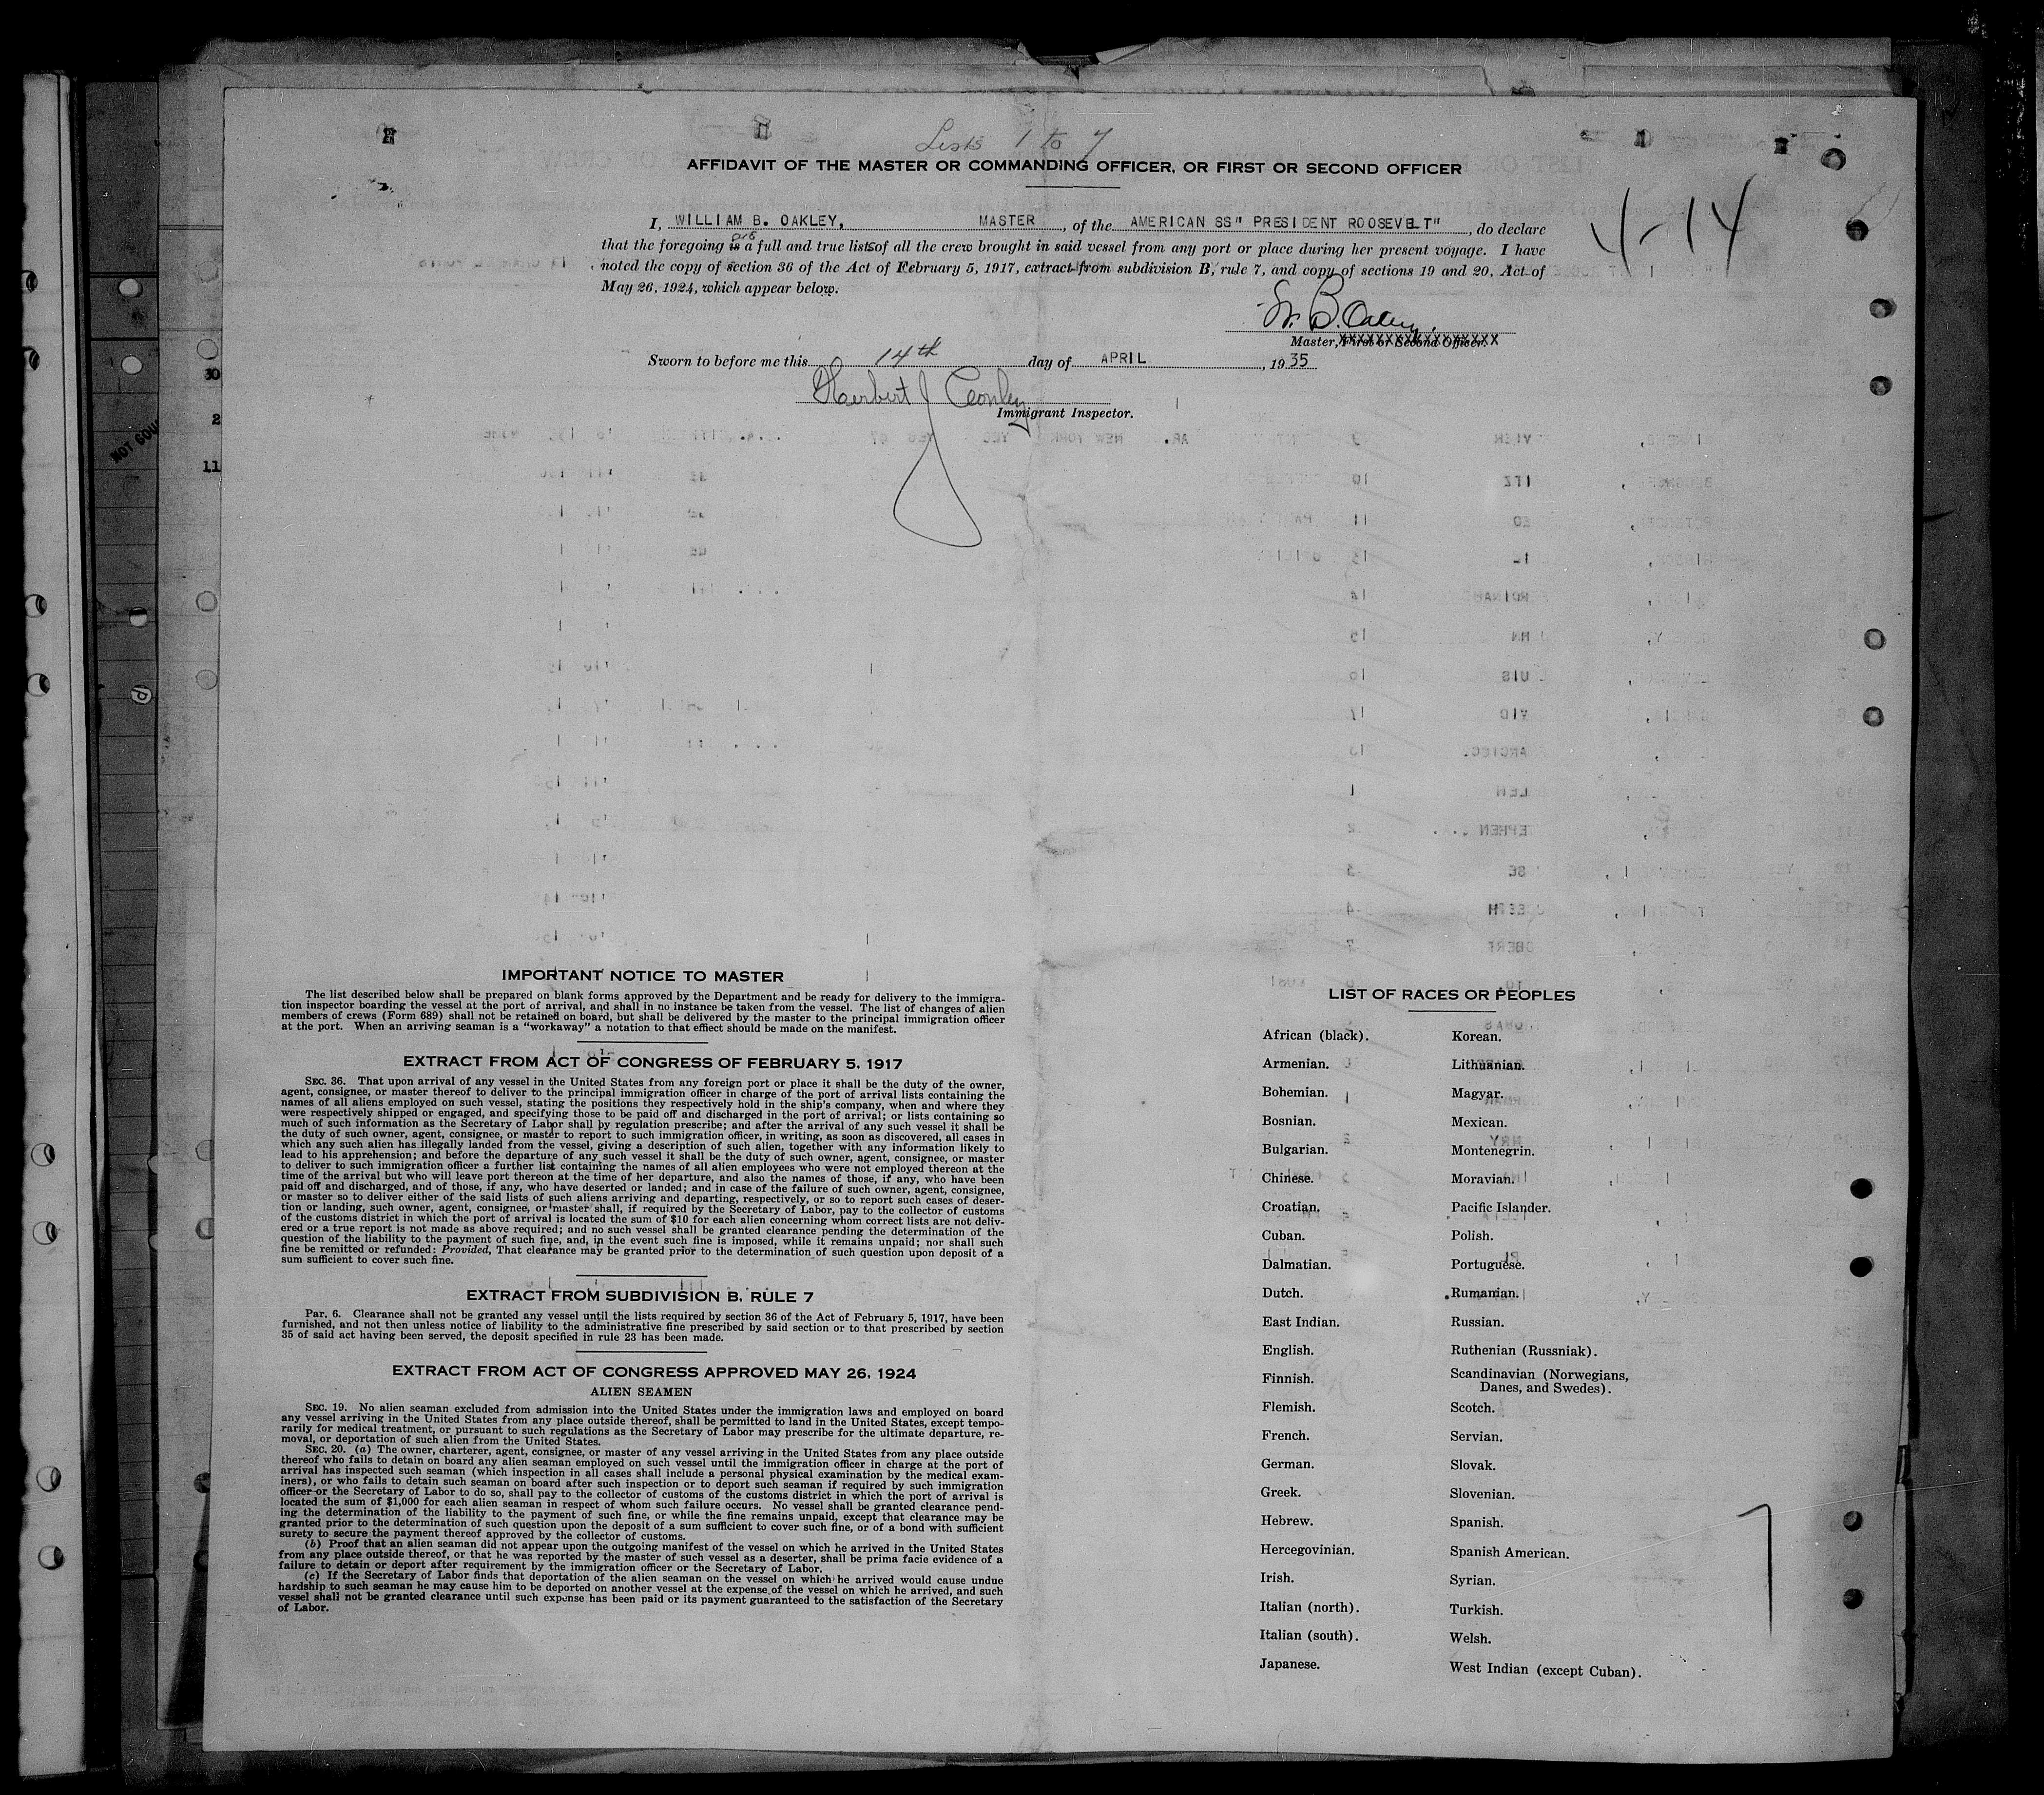 Lists 1 to 7
AFFIDAVIT OF THE MASTER OR COMMANDING OFFICER, OR FIRST OR SECOND OFFICER
4-14
I, WILLIAM B. OAKLEY, MASTER, of the AMERICAN SS" PRESIDENT ROOSEVELT", do declare
that the foregoing is are a full and true lists of all the crew brought in said vessel from any port or place during her present voyage. I have
noted the copy of section 36 of the Act of February 5, 1917, extract from subdivision B, rule 7, and copy of sections 19 and 20, Act of
May 26, 1924, which appear below.
W. B. Oakley.
Master, First or Second Officer.
Sworn to before me this 14th day of APRIL, 1935
Herbert J Conley
Immigrant Inspector.
30
2
11
NOT GOU
IMPORTANT NOTICE TO MASTER
The list described below shall be prepared on blank forms approved by the Department and be ready for delivery to the immigra-
tion inspector boarding the vessel at the port of arrival, and shall in no instance be taken from the vessel. The list of changes of alien
members of crews (Form 689) shall not be retained on board, but shall be delivered by the master to the principal immigration officer
at the port. When an arriving seaman is a "workaway" a notation to that effect should be made on the manifest.
EXTRACT FROM ACT OF CONGRESS OF FEBRUARY 5, 1917
SEC. 36. That upon arrival of any vessel in the United States from any foreign port or place it shall be the duty of the owner,
agent, consignee, or master thereof to deliver to the principal immigration officer in charge of the port of arrival lists containing the
names of all aliens employed on such vessel, stating the positions they respectively hold in the ship's company, when and where they
were respectively shipped or engaged, and specifying those to be paid off and discharged in the port of arrival; or lists containing so
much of such information as the Secretary of Labor shall by regulation prescribe; and after the arrival of any such vessel it shall be
the duty of such owner, agent, consignee, or master to report to such immigration officer, in writing, as soon as discovered, all cases in
which any such alien has illegally landed from the vessel, giving a description of such alien, together with any information likely to
lead to his apprehension; and before the departure of any such vessel it shall be the duty of such owner, agent, consignee, or master
to deliver to such immigration officer a further list containing the names of all alien employees who were not employed thereon at the
time of the arrival but who will leave port thereon at the time of her departure, and also the names of those, if any, who have been
paid off and discharged, and of those, if any, who have deserted or landed; and in case of the failure of such owner, agent, consignee,
or master so to deliver either of the said lists of such aliens arriving and departing, respectively, or so to report such cases of deser-
tion or landing, such owner, agent, consignee, or master shall, if required by the Secretary of Labor, pay to the collector of customs
of the customs district in which the port of arrival is located the sum of $10 for each alien concerning whom correct lists are not deliv-
ered or a true report is not made as above required; and no such vessel shall be granted clearance pending the determination of the
question of the liability to the payment of such fine, and, in the event such fine is imposed, while it remains unpaid; nor shall such
fine be remitted or refunded: Provided, That clearance may be granted prior to the determination of such question upon deposit of a
sum sufficient to cover such fine.
EXTRACT FROM SUBDIVISION B, RULE 7
Par. 6. Clearance shall not be granted any vessel until the lists required by section 36 of the Act of February 5, 1917, have been
furnished, and not then unless notice of liability to the administrative fine prescribed by said section or to that prescribed by section
35 of said act having been served, the deposit specified in rule 23 has been made.
EXTRACT FROM ACT OF CONGRESS APPROVED MAY 26, 1924
ALIEN SEAMEN
SEC. 19. No alien seaman excluded from admission into the United States under the immigration laws and employed on board
any vessel arriving in the United States from any place outside thereof, shall be permitted to land in the United States, except tempo-
rarily for medical treatment, or pursuant to such regulations as the Secretary of Labor may prescribe for the ultimate departure, re-
moval, or deportation of such alien from the United States.
SEC. 20. (a) The owner, charterer, agent, consignee, or master of any vessel arriving in the United States from any place outside
thereof who fails to detain on board any alien seaman employed on such vessel until the immigration officer in charge at the port of
arrival has inspected such seaman (which inspection in all cases shall include a personal physical examination by the medical exam-
iners), or who fails to detain such seaman on board after such inspection or to deport such seaman if required by such immigration
officer or the Secretary of Labor to do so, shall pay to the collector of customs of the customs district in which the port of arrival is
located the sum of $1,000 for each alien seaman in respect of whom such failure occurs. No vessel shall be granted clearance pend-
ing the determination of the liability to the payment of such fine, or while the fine remains unpaid, except that clearance may be
granted prior to the determination of such question upon the deposit of a sum sufficient to cover such fine, or of a bond with sufficient
surety to secure the payment thereof approved by the collector of customs.
(b) Proof that an alien seaman did not appear upon the outgoing manifest of the vessel on which he arrived in the United States
from any place outside thereof, or that he was reported by the master of such vessel as a deserter, shall be prima facie evidence of a
failure to detain or deport after requirement by the immigration officer or the Secretary of Labor.
(c) If the Secretary of Labor finds that deportation of the alien seaman on the vessel on which he arrived would cause undue
hardship to such seaman he may cause him to be deported on another vessel at the expense of the vessel on which he arrived, and such
vessel shall not be granted clearance until such expense has been paid or its payment guaranteed to the satisfaction of the Secretary
of Labor.
LIST OF RACES OR PEOPLES
African (black). Korean.
Armenian. Lithuanian.
Bohemian. Magyar.
Bosnian. Mexican.
Bulgarian. Montenegrin.
Chinese. Moravian.
Croatian. Pacific Islander.
Cuban. Polish.
Dalmatian. Portuguese.
Dutch. Rumanian.
East Indian. Russian.
English. Ruthenian (Russniak).
Finnish. Scandinavian (Norwegians,
Danes, and Swedes).
Flemish. Scotch.
French. Servian.
German. Slovak.
Greek. Slovenian.
Hebrew. Spanish.
Hercegovinian. Spanish American.
Irish. Syrian.
Italian (north). Turkish.
Italian (south). Welsh.
Japanese. West Indian (except Cuban).
7